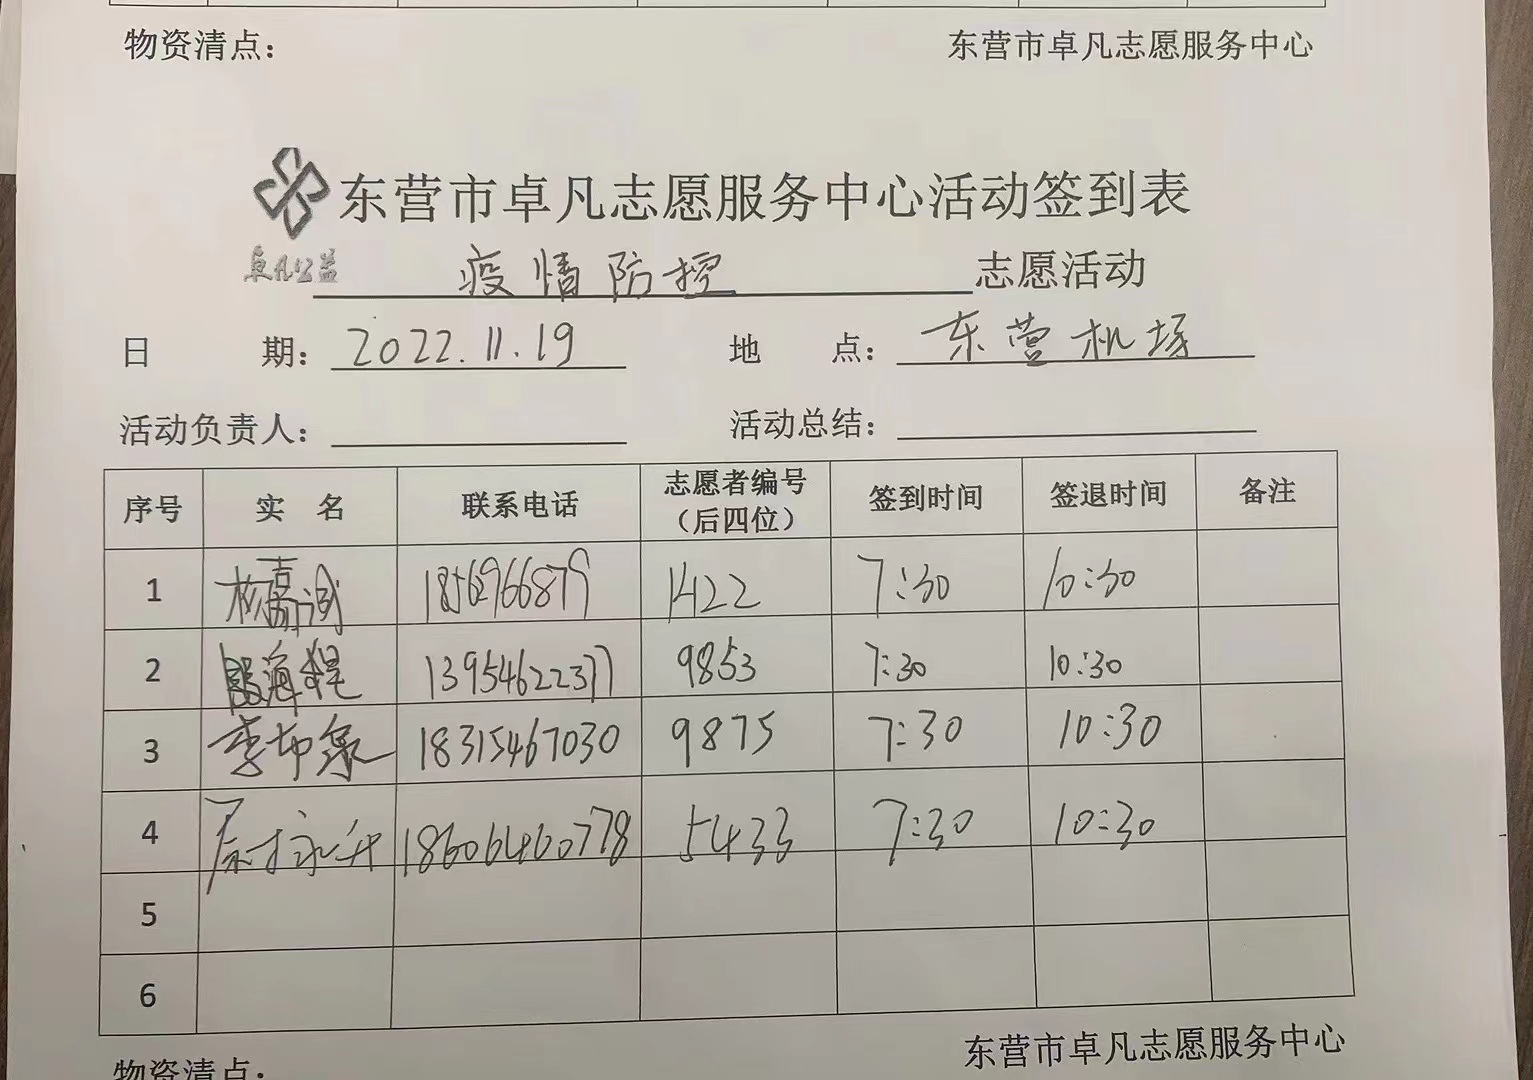 物资清点：
东营市卓凡志愿服务中心
东营市卓凡志愿服务中心活动签到表
卓凡公益
疫情防控 志愿活动
日 期： 2022.11.19 地 点： 东营机场
活动负责人： 活动总结：
序号 实 名 联系电话 志愿者编号（后四位） 签到时间 签退时间 备注
1 18562966879 1422 7:30 10:30
2 13954622377 9853 7:30 10:30
3 18315467030 9875 7:30 10:30
4 18606460778 5433 7:30 10:30
5
6
物资清点：
东营市卓凡志愿服务中心